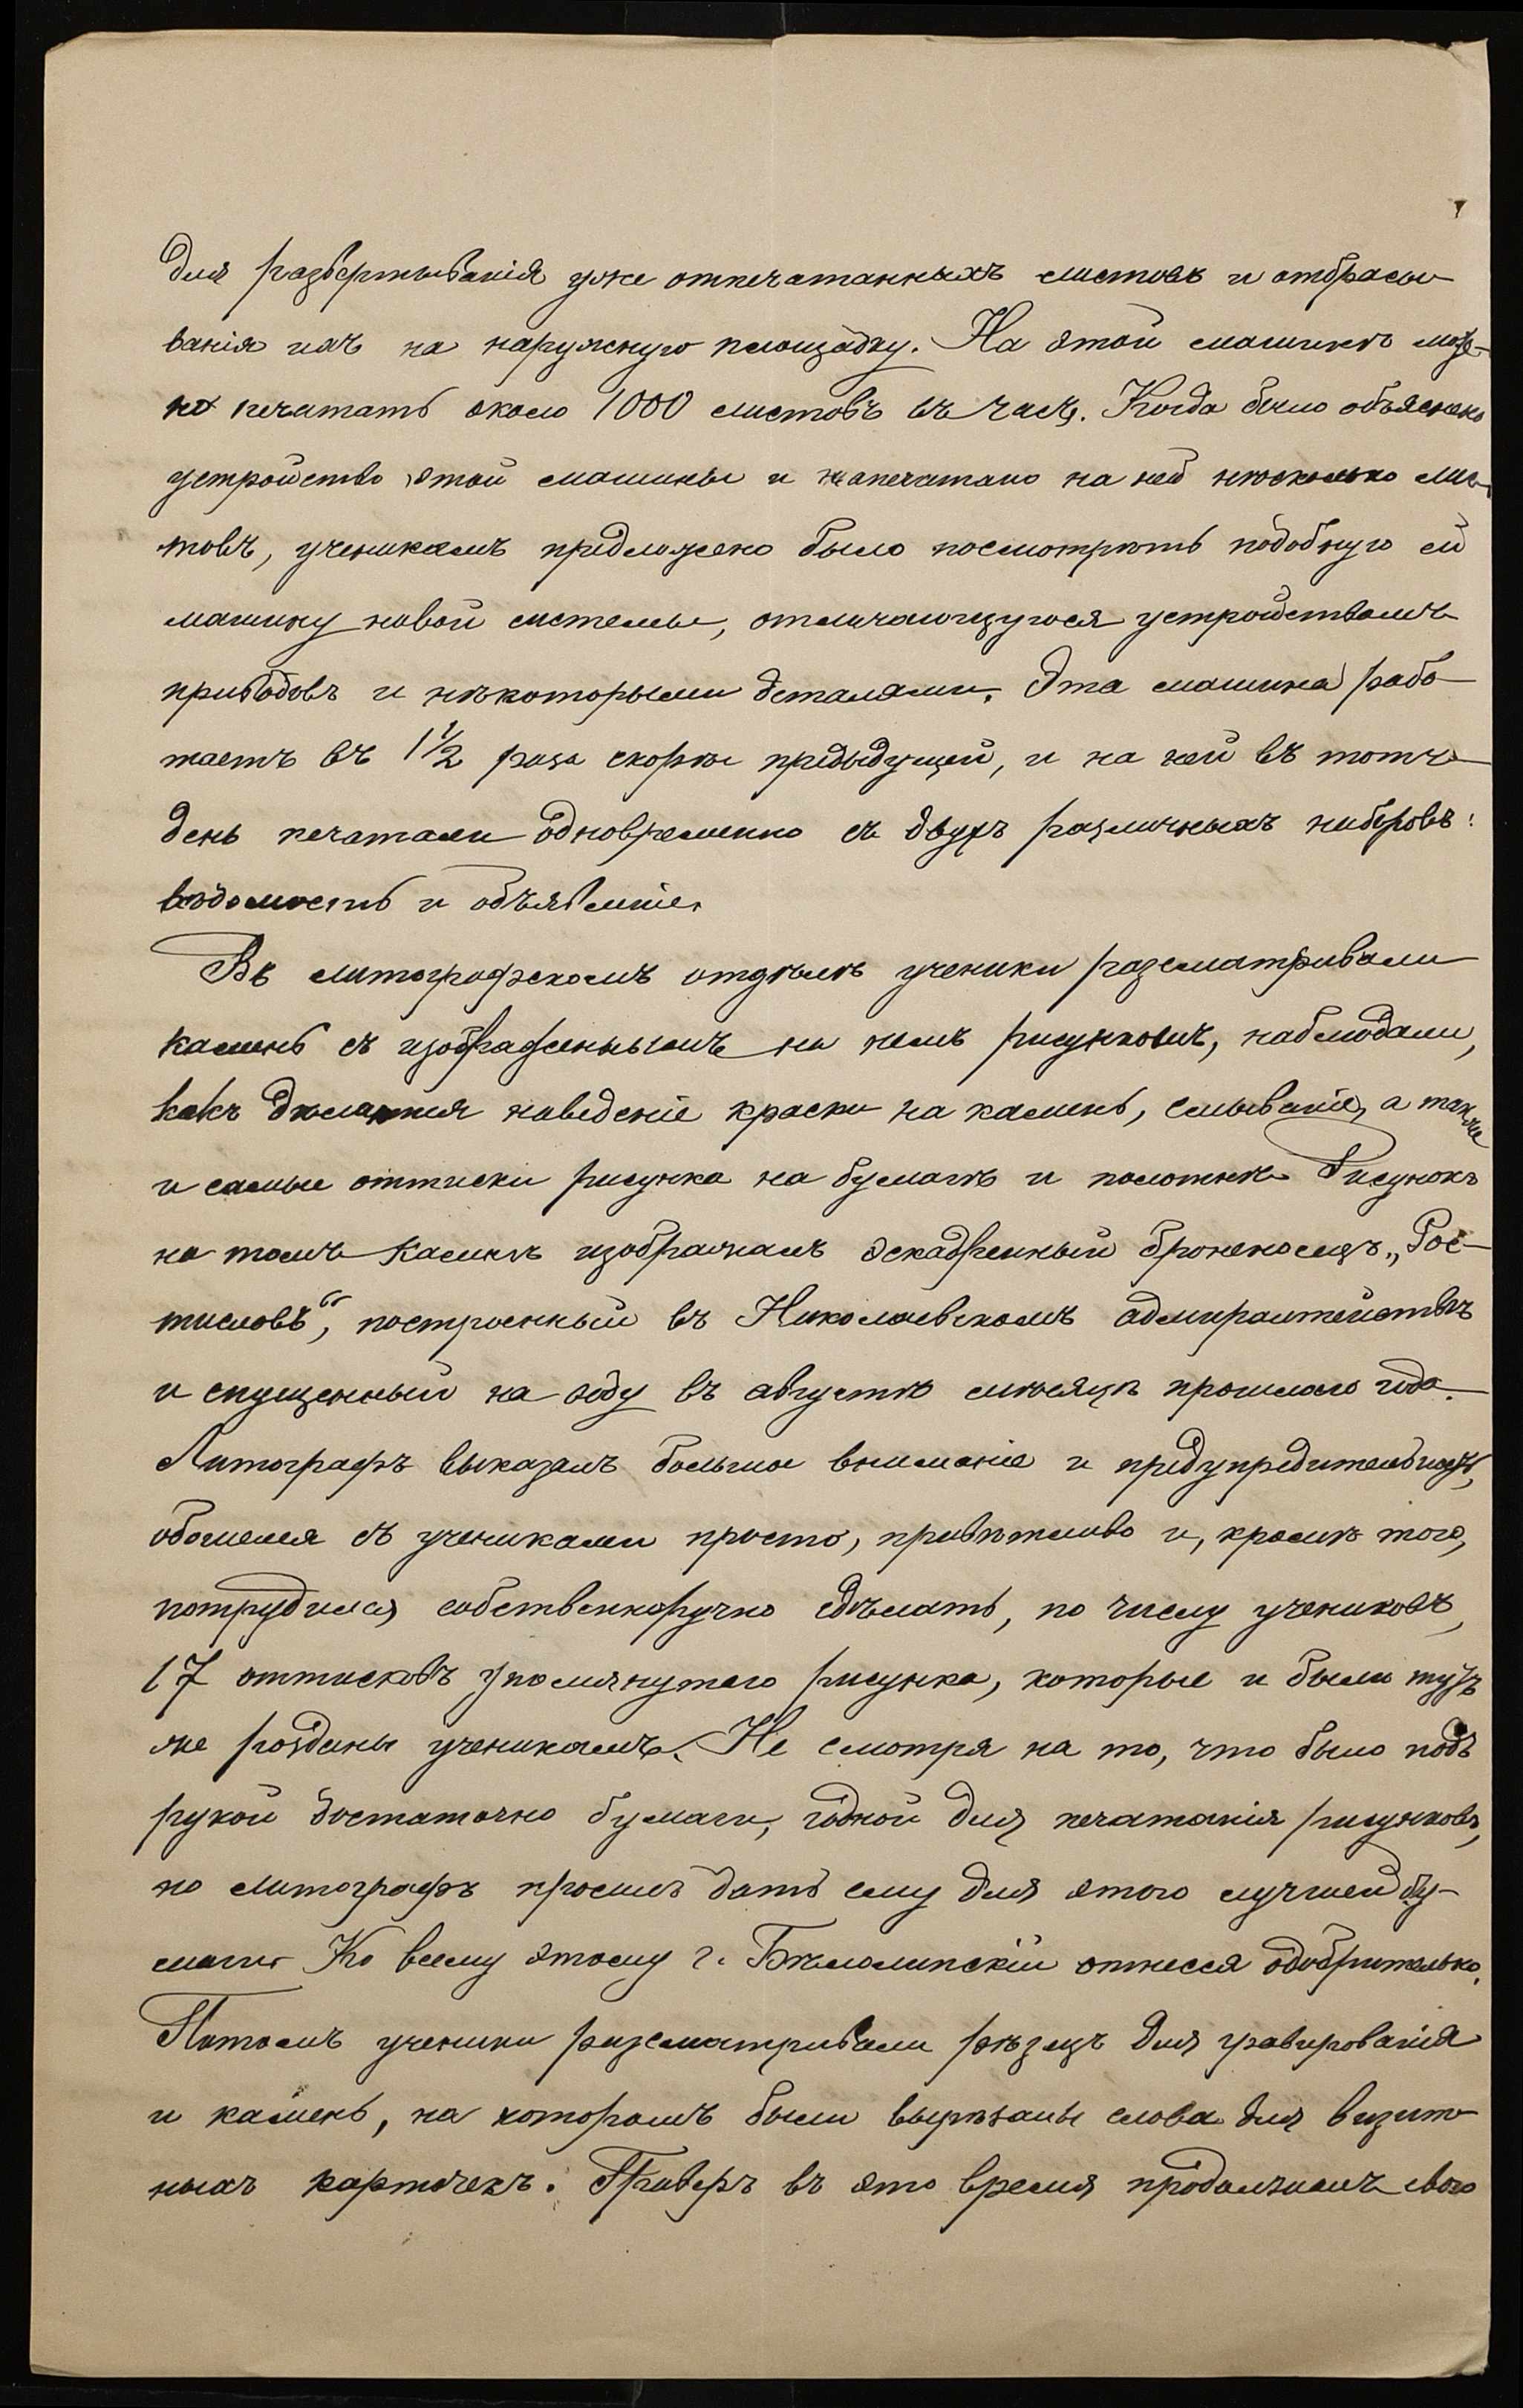 для развертыванія уже отпечатанныхъ листовъ и отбрасы-
ванія ихъ на наружную площадку. На этой машинѣ мож-
но печатать около 1000 листовъ въ часъ. Когда было объяснено
устройство этой машины и напечатано на ней нѣсколько лис-
товъ, ученикамъ предложено было посмотрѣть подобную ей
машину новой системы, отличающуюся устройствомъ
приводовъ и нѣкоторыми деталями. Эта машина рабо-
таетъ въ 1½ раза скорѣе предыдущей, и на ней въ тотъ
день печатали одновременно съ двухъ различныхъ наборовъ:
вѣдомость и объявленіе.
Въ литографскомъ отдѣлѣ ученики разсматривали
камень съ изображеннымъ на немъ рисункомъ, наблюдали,
какъ дѣлается наведеніе краски на камень, смываніе, а также
и самые оттиски рисунка на бумагѣ и полотнѣ. Рисунокъ
на томъ камнѣ изображалъ эскадренный броненосецъ „Рос-
тиславъ“, построенный въ Николаевскомъ адмиралтействѣ
и спущенный на воду въ августѣ мѣсяцѣ прошлаго года.
Литографъ выказалъ большое вниманіе и предупредительность,
обошелся съ учениками просто, привѣтливо и, кромѣ того,
потрудился собственноручно сдѣлать, по числу учениковъ,
17 оттисковъ упомянутаго рисунка, которые и были тутъ
же розданы ученикамъ. Не смотря на то, что было подъ
рукой достаточно бумаги, годной для печатанія рисунковъ,
но литографъ просилъ дать ему для этого лучшей бу-
маги. Ко всему этому г. Бѣлолипскій отнесся одобрительно.
Потомъ ученики разсматривали рѣзецъ для гравированія
и камень, на которомъ были вырѣзаны слова для визит-
ныхъ карточекъ. Граверъ въ это время продолжалъ свою